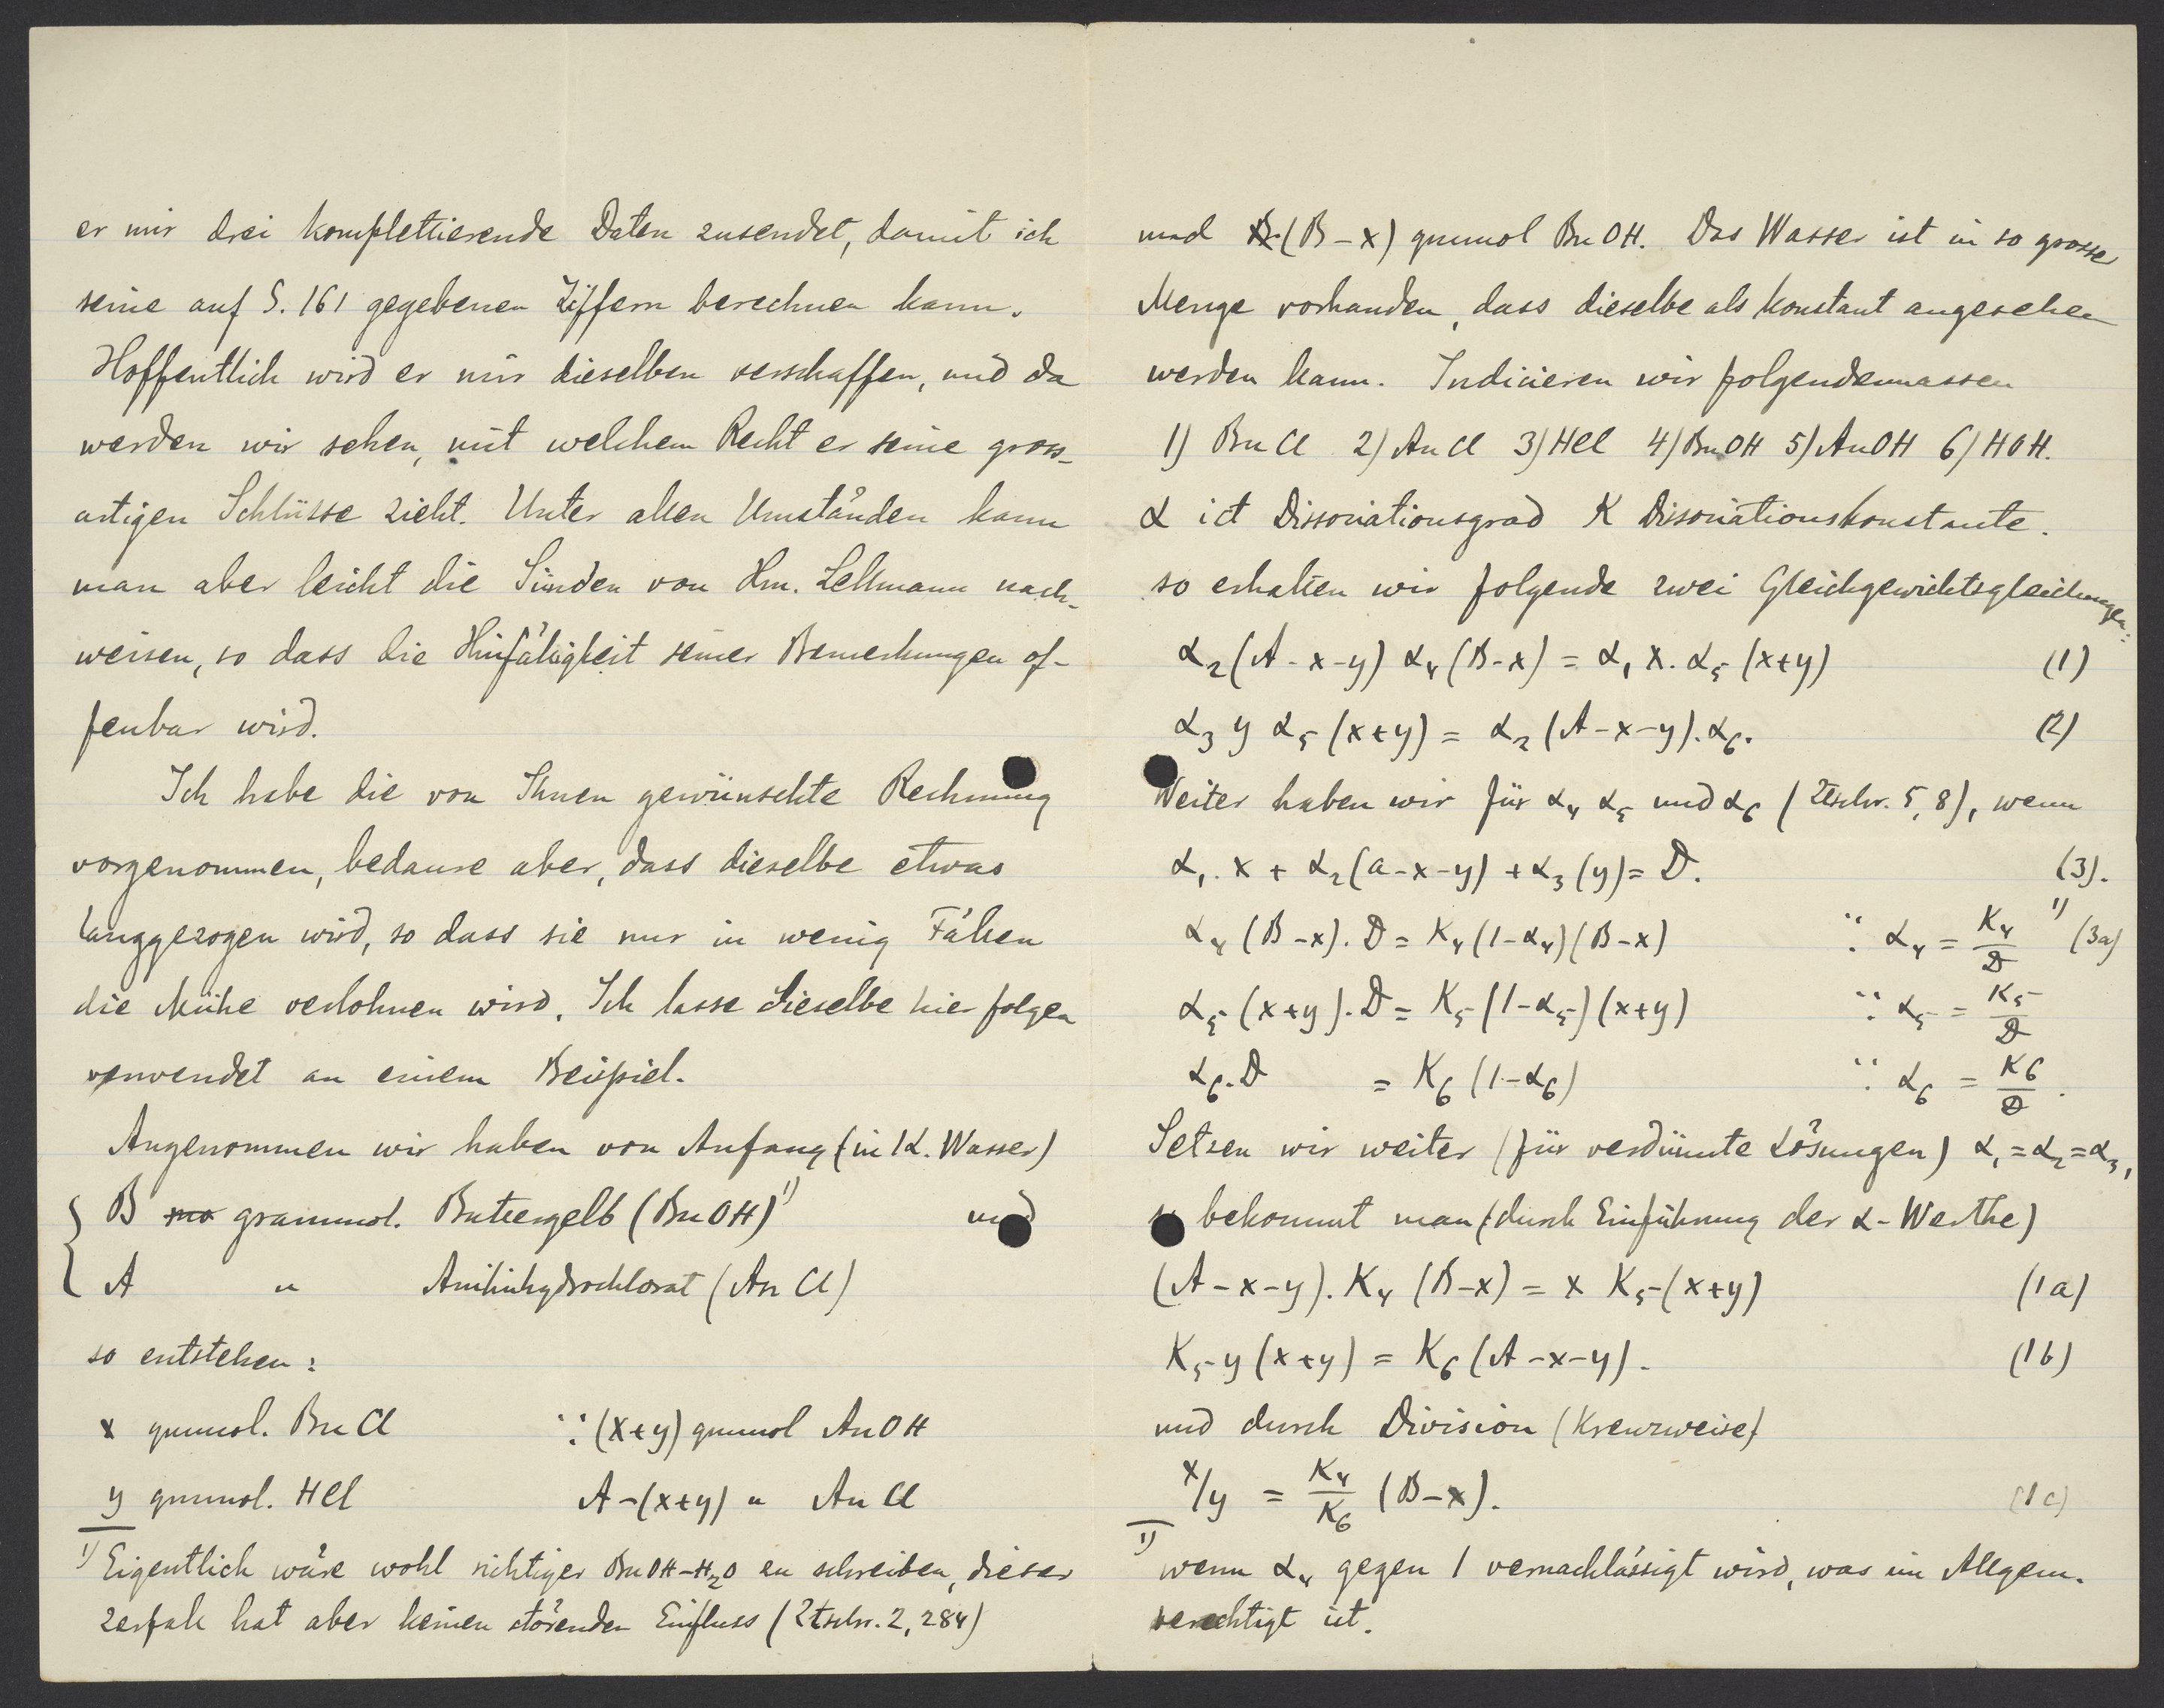 er mir drei komplettierende Daten zusendet, damit ich
seine auf S. 161 gegebenen Ziffern berechnen kann.
Hoffentlich wird er mir dieselben verschaffen, und da
werden wir sehen, mit welchem Recht er seine gross-
artigen Schlüsse zieht. Unter allen Umständen kann
man aber leicht die Sünden von Hrn. Lellmann nach-
weisen, so dass die Hinfälligkeit seiner Bemerkungen of-
fenbar wird.
Ich habe die von Ihnen gewünschte Rechnung
vorgenommen, bedaure aber, dass dieselbe etwas
langgezogen wird, so dass sie nur in wenig Fällen
die Mühe verlohnen wird. Ich lasse dieselbe hier folgen
verwendet an einem Beispiel.
Angenommen wir haben von Anfang (in 1 L. Wasser)
B grammol. Buttergelb (BuOH)¹⁾ und
A " Anilinhydrochlorat (AnCl)
so entstehen:
x grmmol. BuCl ∵ (x+y) grmmol AnOH
y grmmol. HCl A-(x+y) " AnCl
¹⁾ Eigentlich wäre wohl richtiger BuOH-H₂O zu schreiben, dieser
Zerfall hat aber keinen störenden Einfluss (Ztschr. 2, 284)
und (B-x) grmmol BuOH. Das Wasser ist in so grosser
Menge vorhanden, dass dieselbe als konstant angesehen
werden kann. Indicieren wir folgendermassen
1) BuCl 2) AnCl 3) HCl 4) BuOH 5) AnOH 6) HOH.
α ist Dissociationsgrad K Dissociationskonstante.
so erhalten wir folgende zwei Gleichgewichtsgleichungen:
α₂(A-x-y) α₄(B-x) = α₁ x. α₅ (x+y) (1)
α₃ y α₅ (x+y) = α₂ (A-x-y). α₆. (2)
Weiter haben wir für α₄ α₅ und α₆ (Ztschr. 5, 8), wenn
α₁. x + α₂(a-x-y) + α₃(y) = D. (3).
α₄ (B-x). D = K₄(1-α₄)(B-x) ∵ α₄ = K₄/D ¹⁾ (3a)
α₅ (x+y). D = K₅(1-α₅)(x+y) ∵ α₅ = K₅/D
α₆. D = K₆ (1-α₆) ∵ α₆ = K₆/D.
Setzen wir weiter (für verdünnte Lösungen) α₁=α₂=α₃,
so bekommt man (durch Einführung der α-Werthe)
(A-x-y). K₄ (B-x) = x K₅ (x+y) (1a)
K₅ y (x+y) = K₆ (A-x-y). (1b)
und durch Division (Kreuzweise)
x/y = K₄/K₆ (B-x). (1c)
¹⁾ wenn α₄ gegen 1 vernachlässigt wird, was im Allgem.
berechtigt ist.